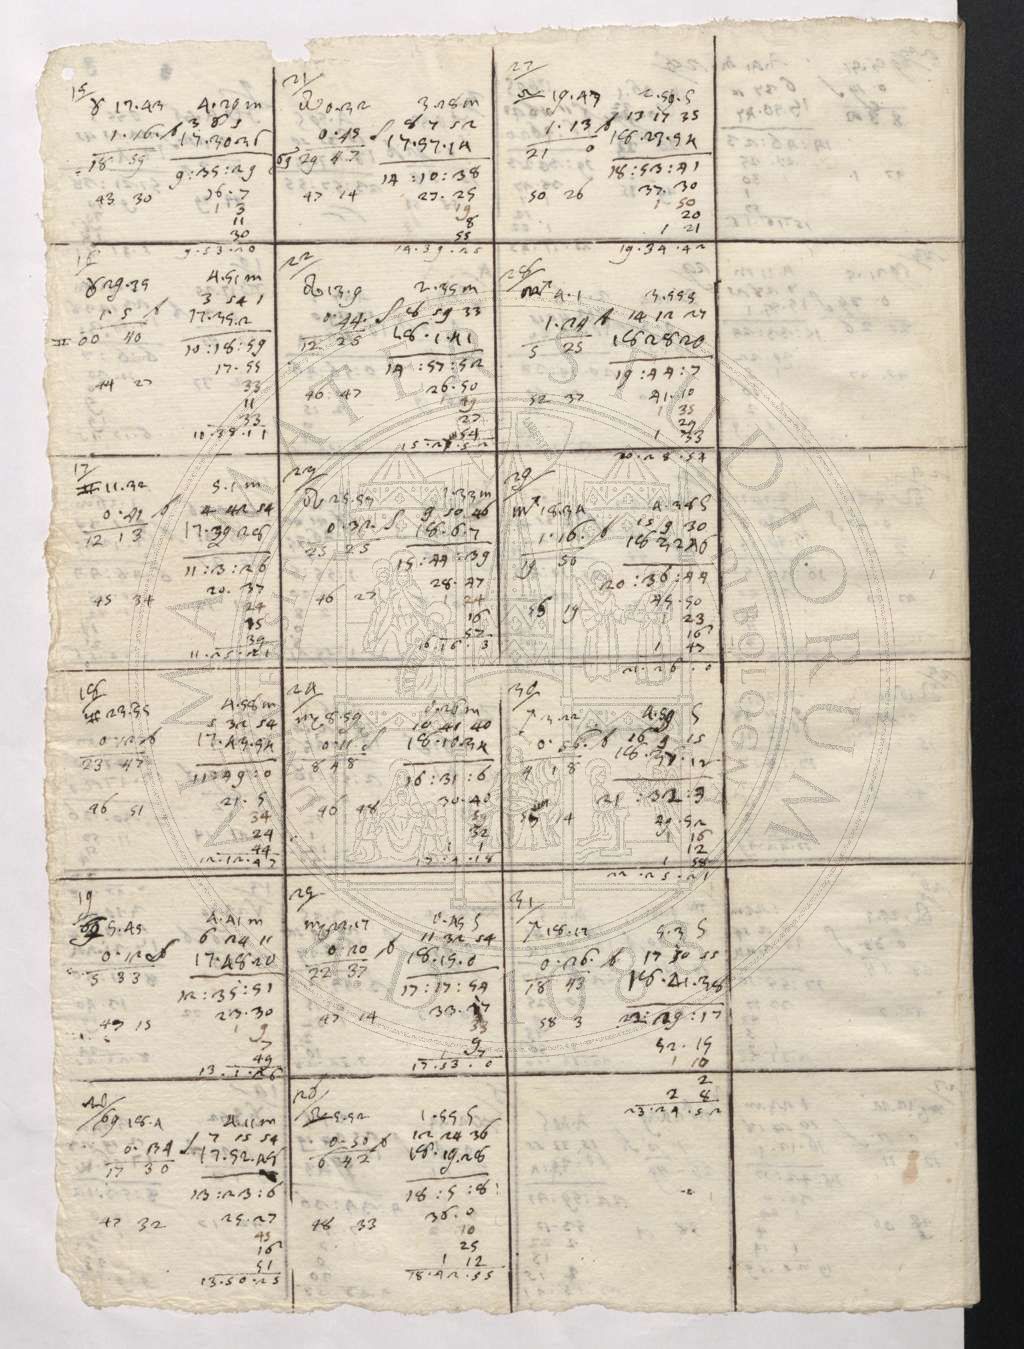 15
♉ 17.43 4.29 m
1.16.
18 59 17.30.36
9:35:29
43 30 16:7
1 3
11
30
9.53.20
16
♉ 29.35 4.51 m
1.5 3 54 1
♊ 00 40 17.35.2
10:18:59
44 27 17.55
33
11
33
10.38.11
17
♊ 11.32 5.1 m
0.41 4 42 54
12 13 17.39.28
11:3:26
45 34 20.37
24
15
39
11.25.21
18
♊ 23.35 4.56 m
0.12 5 32 54
23 47 17.43.54
11:49:0
46 51 21.5
34
24
44
12.12.47
19
♋ 5.45 4.41 m
6 24 11
5 33 17.48.20
12:35:51
47 15 23.30
1 9
7
49
13.1.26
20
♋ 18.4 4.11 m
7 15 54
17 30 17.52.45
13:23:6
47 32 25.27
45
16
51
13.50.25
21
♌ 0.32 3.28 m
0.45 8 7 52
♋ 29 47 17.57.14
14:10:38
47 14 27.25
19
8
55
14.39.25
22
♌ 13.9 2.35 m
0.44 8 59 33
12 25 18.1.41
14:57:52
46 47 26.50
49
27
54
15.27.52
23
♌ 25.57 1.33 m
0.32 9 50 46
25 25 18.6.7
15:44:39
46 27 28.47
24
16
57
16.16.3
24
♍ 8.59 0.26 m
0.11 10 41 40
8 48 18.10.34
16:31:6
46 48 30.40
59
32
1 1
17.4.18
25
♍ 22.17 0.45 S
0.20 11 32 54
22 37 18.15.0
17:17:54
47 14 33.17
33
9
1 7
17.53.0
26
♎ 5.52 1.55 S
0.50 12 24 36
6 42 18.19.28
18:5:8
48 33 36.0
10
25
1 12
18.42.55
27
♎ 19.47 2.50.S
1.13 13 17 35
21 0 18.23.54
18:53:41
50 26 37.30
1 50
20
1 21
19.34.42
28
♏ 4.1 3.55 S
1.24 14 12 27
5 25 18 28 20
19:44:7
52 37 41.10
1 35
29
1 33
20.28.54
29
♏ 18.34 4.36 S
1.16. 15 9 30
19 50 18 32 46
20:36:44
55 19 45.50
1 23
16
1 47
21.26.0
30
♐ 3.22 4.59 S
0.56. 16 9 15
4 18 18.37.12
21:32:3
14 49.52
1 16
12
1 58
22.25.21
31
♐ 18.17 5.3 S
0.26. 17 10 55
18 43 18.41.38
22:29:17
58 3 52.15
1 10
2
2 8
23.24.52